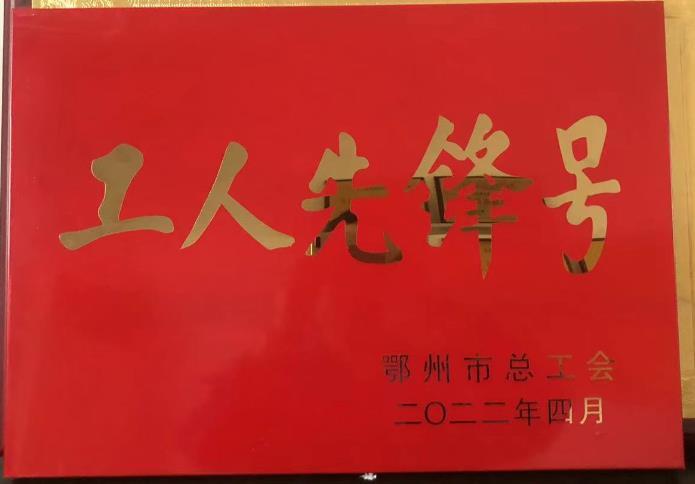 工人先锋号
鄂州市总工会
二〇二二年四月